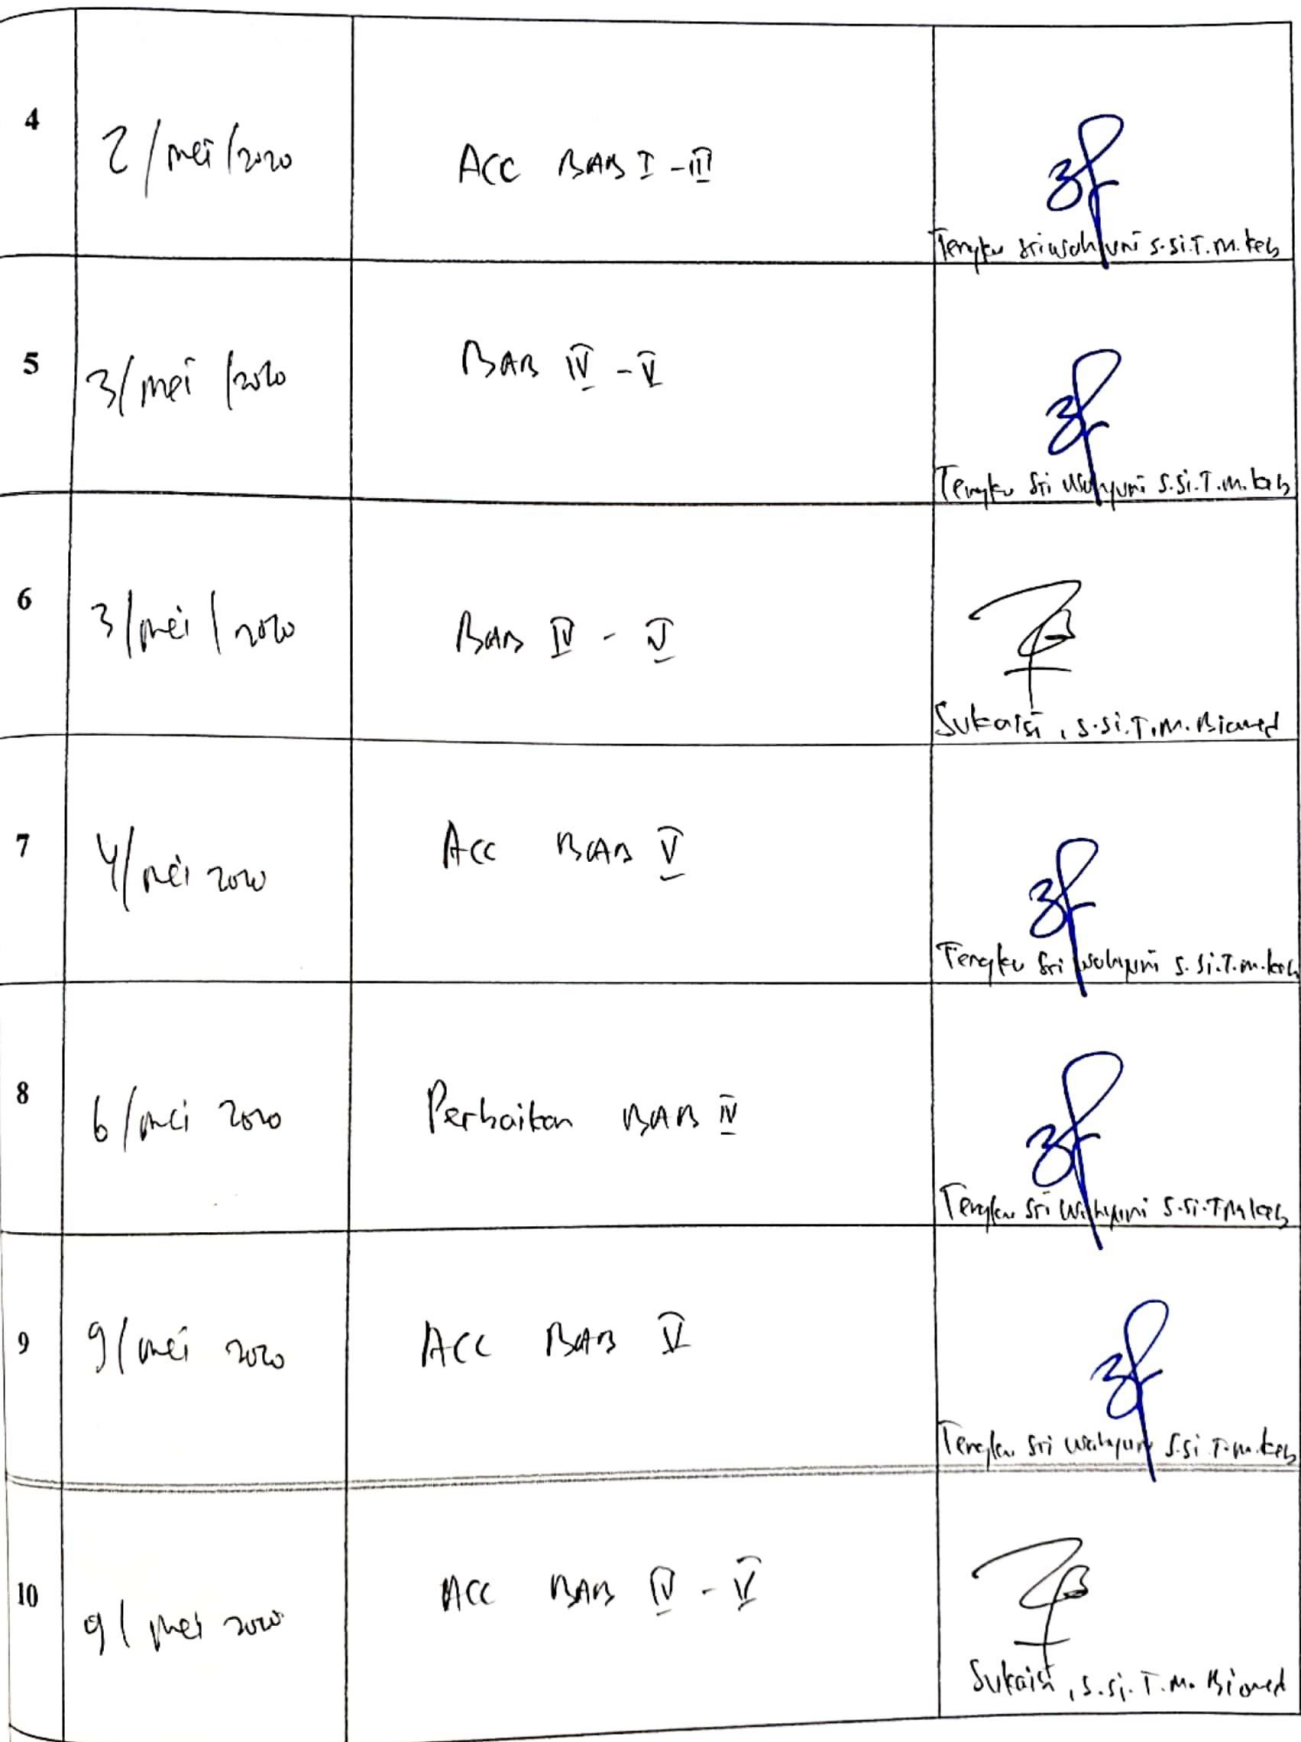 4
2/mei/2020
ACC BAB I - III
Tengku sri wahyuni S.Si.T.M.keb
5
3/mei/2020
BAB IV - V
Tengku Sri Wahyuni S.Si.T.M.keb
6
3/mei/2020
BAB IV - V
Sukaisi, S.Si.T.M.Biomed
7
4/mei 2020
Acc BAB V
Tengku Sri Wahyuni S.Si.T.M.keb
8
6/mei 2020
Perbaikan BAB IV
Tengku Sri Wahyuni S.Si.T M keb
9
9/mei 2020
ACC BAB V
Tengku Sri Wahyuni S.Si T.M.keb
10
9/mei 2020
ACC BAB IV - V
Sukaisi, S.Si.T.M.Biomed